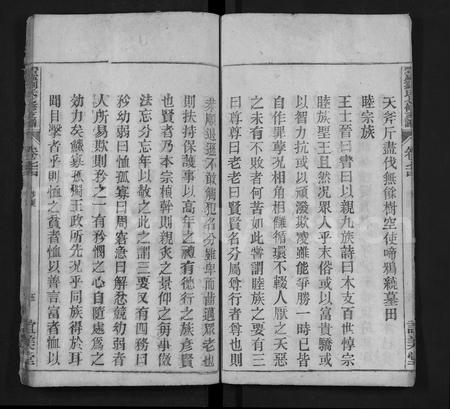 天斧斤盡伐無餘樹空使啼鴉繞墓田
睦宗族
王士晉曰書曰以親九族詩曰本支百世惇宗
睦族聖王且然况眾人乎末俗或以富貴驕或
以智力抗或以頑潑欺凌雖能爭勝一時已皆
自作罪孽况相角相讎循環不輟人厭之天惡
之未有不敗者何苦如此嘗謂睦族之要有三
曰尊尊曰老老曰賢賢名分屬尊行者尊也則
恭順退遜不敢觸犯名分雖卑而齒邁眾老也
則扶持保護事以高年之禮有德行之族彥賢
也賢者乃本宗楨幹則親炙之景仰之每事傚
法忘分忘年以敬之此之謂三要又有四務曰
矜幼弱曰恤孤寡曰周窘急曰解忿競幼弱者
人所易欺則矜之一有矜憫之心自隨處為之
効力矣鰥寡孤獨王政所先况乎同族得於耳
聞目擊者乎則恤之貧者恤以善言富者恤以
誼美堂